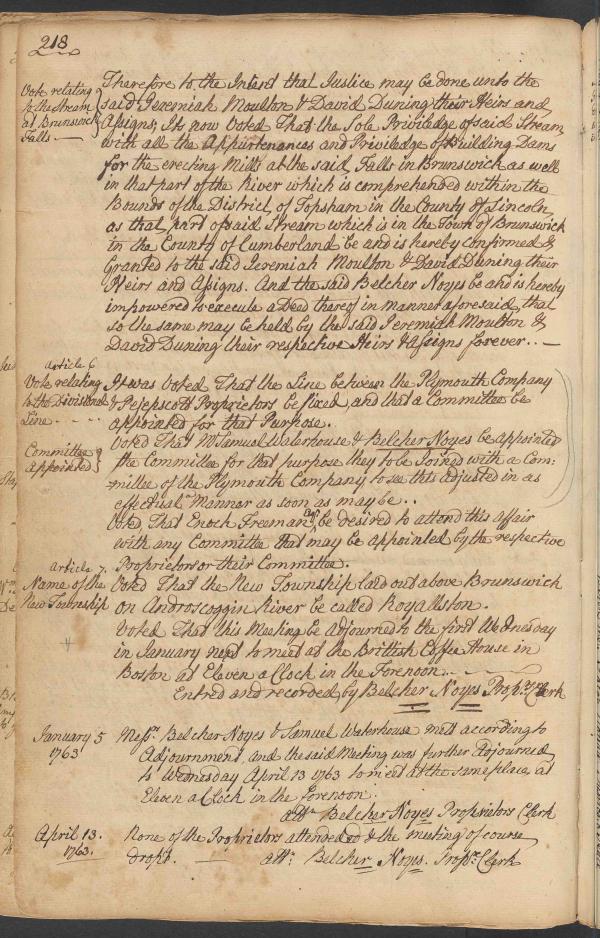 218
Vote relating
to the Stream
at Brunswick
Falls
Therefore to the Intent that Justice may be done unto the
said Jeremiah Moulton & David Duning their Heirs and
Assigns; Its now Voted That the Sole Priviledge of said Stream
with all the Appurtenances and Priviledge of Building Dams
for the erecting Mills at the said Falls in Brunswick as well
in that part of the River which is comprehended within the
Bounds of the District of Topsham in the County of Lincoln,
as that part of said Stream which is in the Town of Brunswick
in the County of Cumberland be and is hereby Confirmed &
Granted to the said Jeremiah Moulton & David Duning their
Heirs and Assigns. And the said Belcher Noyes be and is hereby
impowered to execute a Deed thereof in manner aforesaid, that
So the same may be held by the said Jeremiah Moulton &
David Duning their respective Heirs & Assigns forever..
article 6
Vote relating
to the Dividend
Line
It was Voted That the Line between the Plymouth Company
& Pejepscott Proprietors be fixed, and that a Committee be
appointed for that Purpose.
Committee
appointed
Voted That Mr. Samuel Waterhouse & Belcher Noyes be appointed
the Committee for that purpose they to be Joined with a Com:
mittee of the Plymouth Company to see this adjusted in as
effectual Manner as soon as may be..
Voted, That Enoch Freeman Esqr. be desired to attend this affair
with any Committee that may be appointed by the respective
Proprietors or their Committee.
article 7.
Name of the
New Township
Voted That the New Township laid out above Brunswick
on Androscoggin River be called Royallston.
Voted That this Meeting be adjourned to the first Wednesday
in January next to meet at the Brittish Coffee House in
Boston at Eleven a Clock in the Forenoon..
Entred and recorded by Belcher Noyes Proprs. Clerk
January 5
1763
Messrs. Belcher Noyes & Samuel Waterhouse mett according to
Adjournment, and the said Meeting was further Adjourned
to Wednesday April 13 1763 to meet at the same place, at
Eleven a Clock in the forenoon.
attr. Belcher Noyes Proprietors Clerk
April 13.
1763.
None of the Proprietors attended & the meeting of course
dropt. attr: Belcher Noyes. Proprs. Clerk